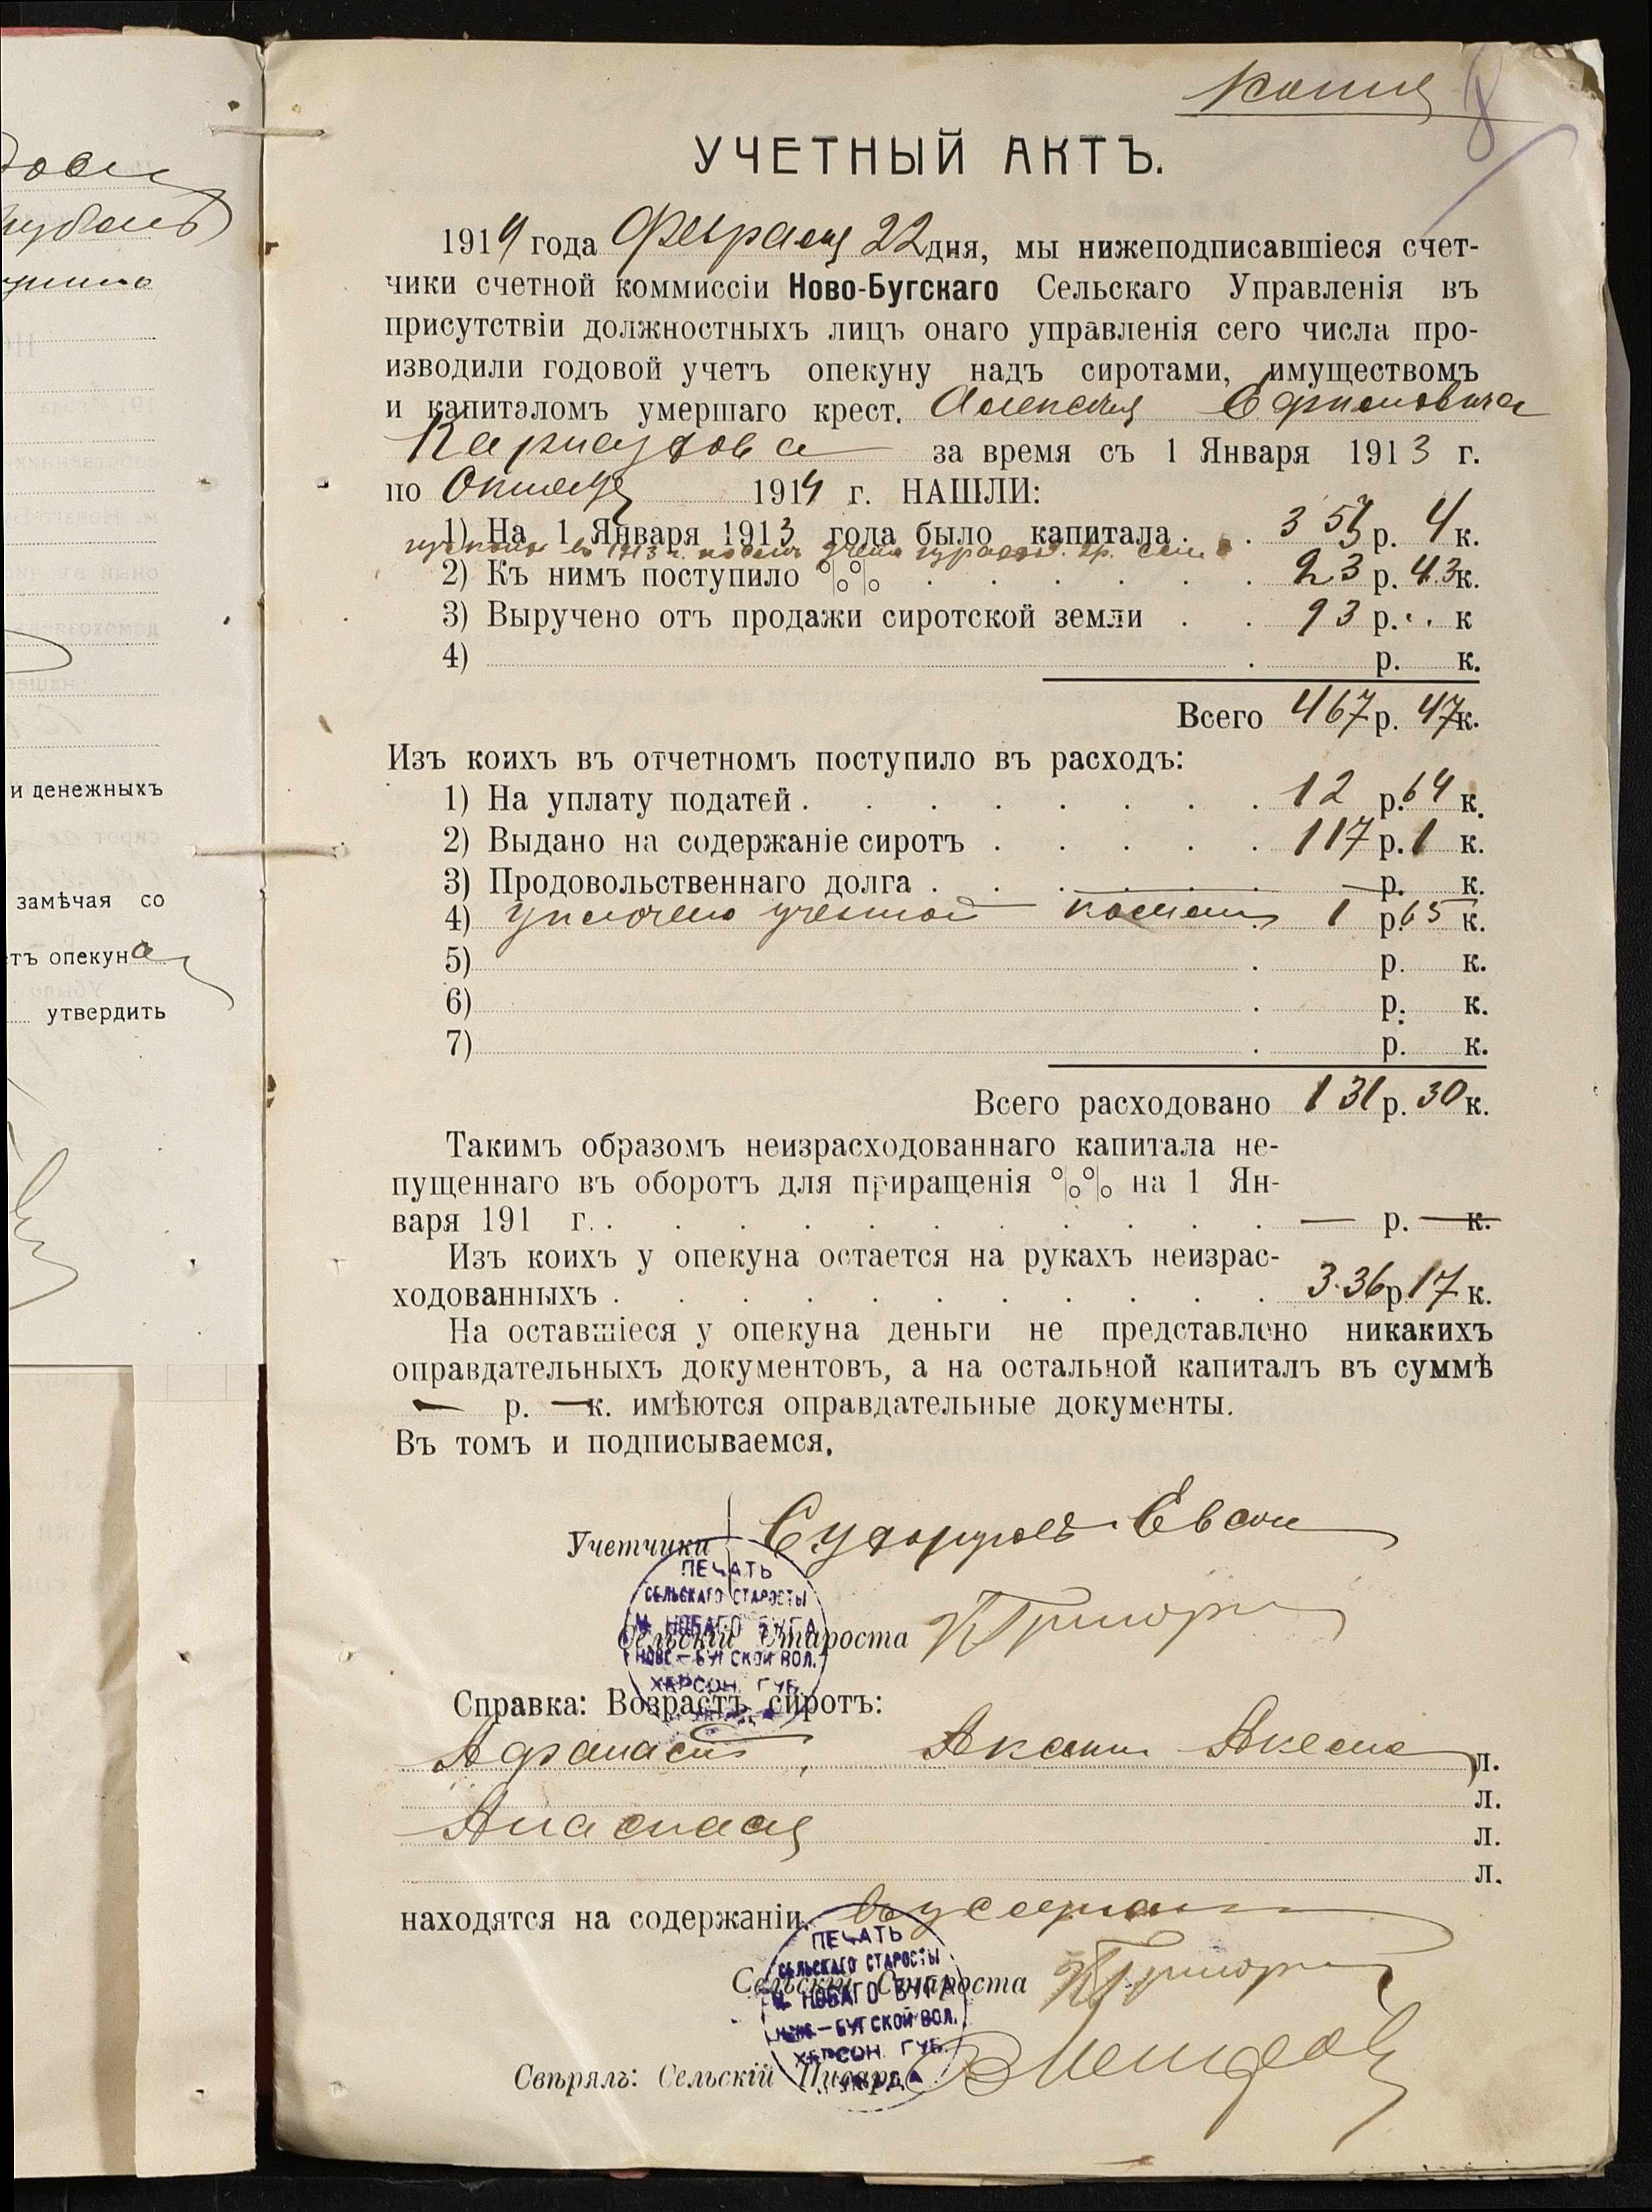 копия
8
УЧЕТНЫЙ АКТЪ.
1914 года Февраля 22 дня, мы нижеподписавшіеся счет-
чики счетной коммиссіи Ново-Бугскаго Сельскаго Управленія въ
присутствіи должностныхъ лицъ онаго управленія сего числа про-
изводили годовой учетъ опекуну надъ сиротами, имуществомъ
и капиталомъ умершаго крест. Алексея Ефимовича
за время съ 1 Января 1913 г.
по 1914 г. НАШЛИ:
1) На 1 Января 1913 года было капитала . . 351 р. 4 к.
2) Къ нимъ поступило %% . . . . . . 23 р. 43 к.
3) Выручено отъ продажи сиротской земли . . 93 р. .. к
4) . р. к.
Всего 467 р. 47 к.
Изъ коихъ въ отчетномъ поступило въ расходъ:
1) На уплату податей . . . . . . . . 12 р. 64 к.
2) Выдано на содержаніе сиротъ . . . . . 117 р. 1 к.
3) Продовольственнаго долга . . . . . . — р. к.
4) уплочено учетной 1 р. 65 к.
5) . р. к.
6) . р. к.
7) . р. к.
Всего расходовано 131 р. 30 к.
Такимъ образомъ неизрасходованнаго капитала не-
пущеннаго въ оборотъ для приращенія %% на 1 Ян-
варя 191 г. . . . . . . . . . . — р. — к.
Изъ коихъ у опекуна остается на рукахъ неизрас-
ходованныхъ . . . . . . . . . . . 336 р. 17 к.
На оставшіеся у опекуна деньги не представлено никакихъ
оправдательныхъ документовъ, а на остальной капиталъ въ суммѣ
— р. — к. имѣются оправдательные документы.
Въ томъ и подписываемся.
Учетчики
ПЕЧАТЬ
СЕЛЬСКАГО СТАРОСТЫ
М. НОВАГО БУГА
НОВО-БУГСКОЙ ВОЛ.
ХЕРСОН. ГУБ.
Сельскій Староста
Справка: Возрастъ сиротъ:
Афанасій, л.
л.
Анастасія л.
л.
находятся на содержаніи.
ПЕЧАТЬ
СЕЛЬСКАГО СТАРОСТЫ
М. НОВАГО БУГА
НОВО-БУГСКОЙ ВОЛ.
ХЕРСОН. ГУБ.
Сельскій Староста
Свѣрялъ: Сельскій Писарь
и денежныхъ
замѣчая со
тъ опекуна
утвердить